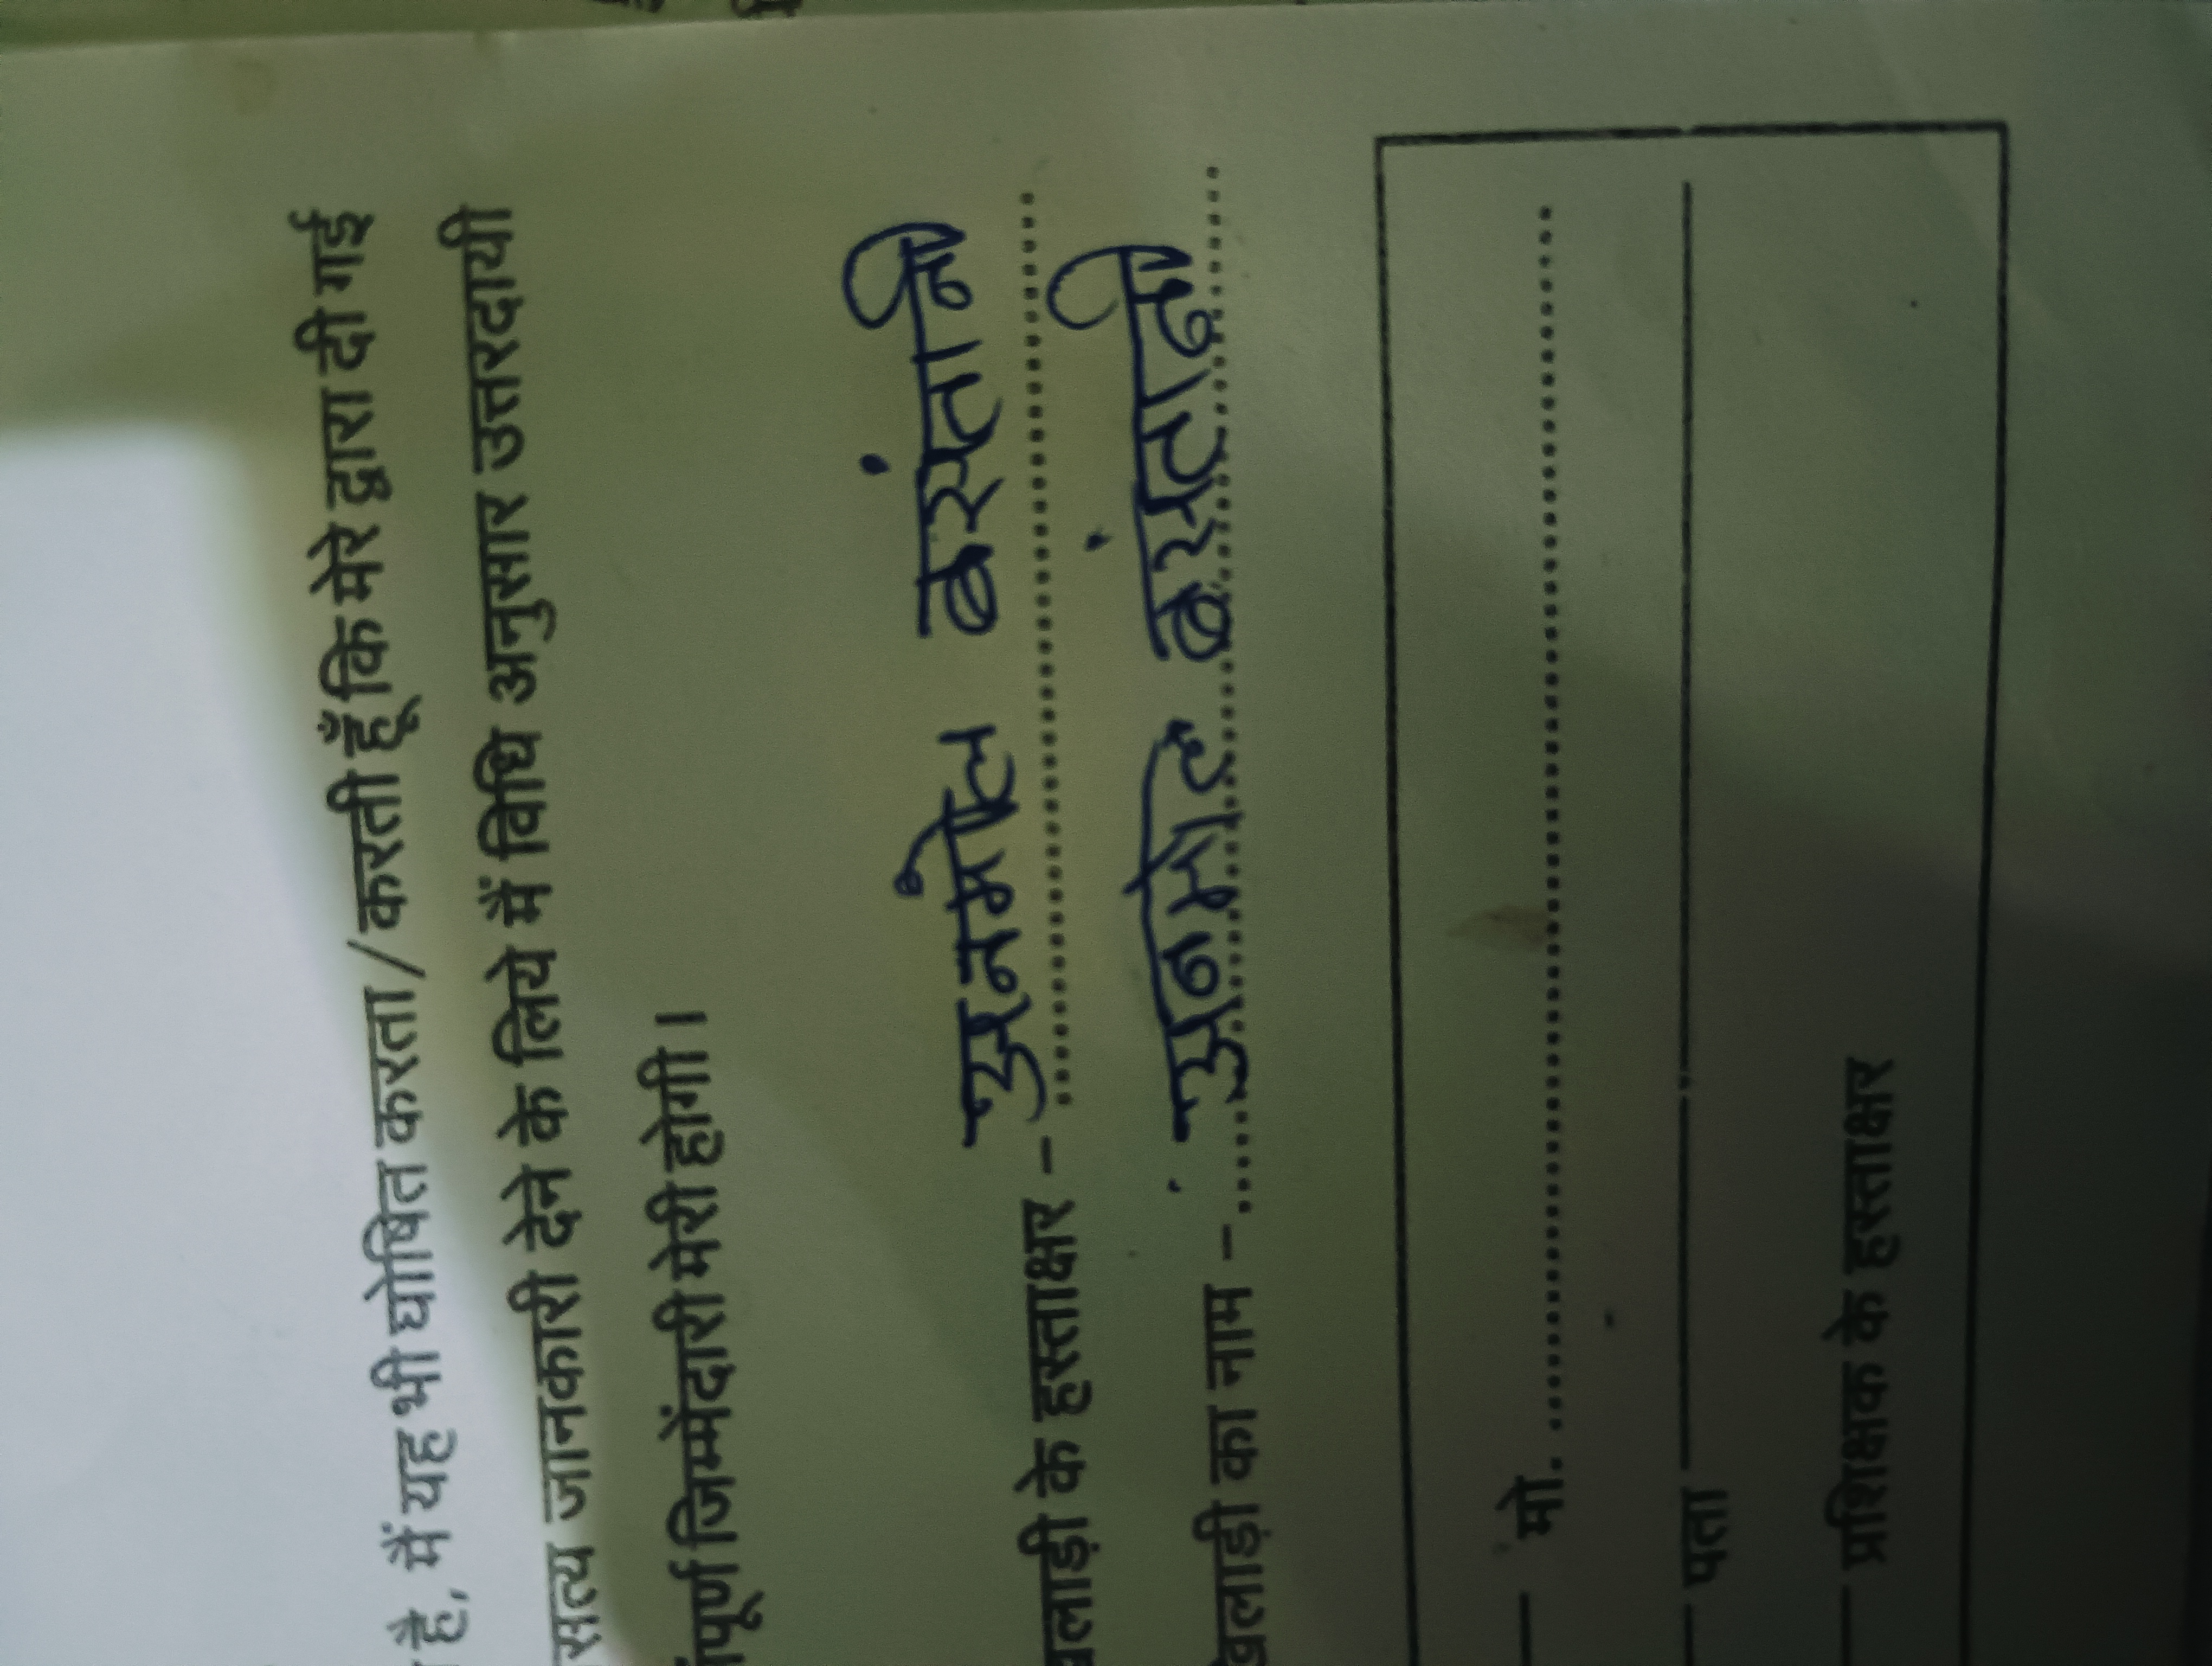 है, मैं यह भी घोषित करता/करती हूँ कि मेरे द्वारा दी गई
सत्य जानकारी देने के लिये मैं विधि अनुसार उत्तरदायी
संपूर्ण जिम्मेंदारी मेरी होगी ।
खिलाड़ी के हस्ताक्षर – ..... बसंतानी
खिलाड़ी का नाम – ..... बसंतानी
मो. .....
पता
प्रशिक्षक के हस्ताक्षर